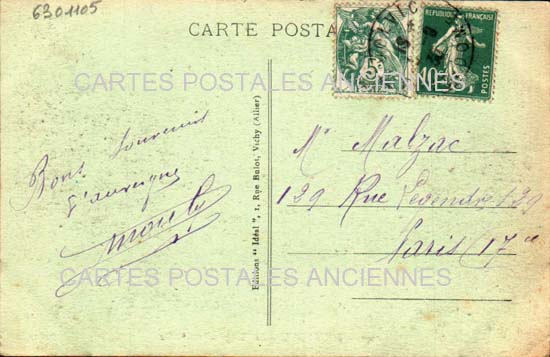 6301105
CARTE POSTA
RÉPUBLIQUE FRANÇAISE
POSTES
5
10
CARTES POSTALES ANCIENNES
Bons souvenirs
d'auvergne
Mr Malzac
129 Rue Legendre 129
Paris 17e
Editions "Idéal", 1, Rue Bulot, Vichy (Allier)
CARTES POSTALES ANCIENNES